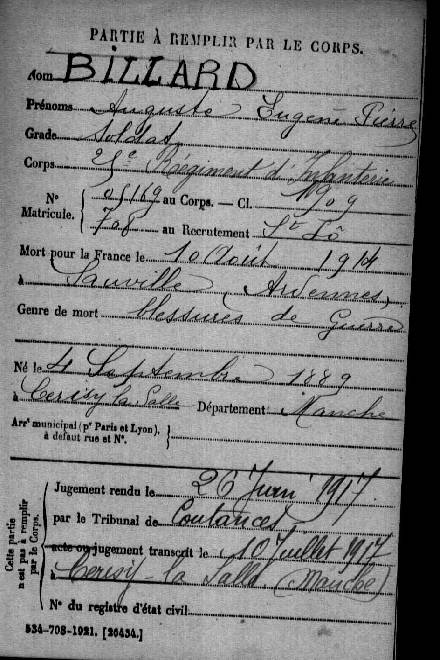 PARTIE À REMPLIR PAR LE CORPS.
Nom BILLARD
Prénoms Auguste Eugène Pierre
Grade Soldat
Corps 25e Régiment d'Infanterie
N° Matricule. { 05169 au Corps. — Cl. 1909
708 au Recrutement St Lô
Mort pour la France le 10 Août 1914
à Sauville (Ardennes)
Genre de mort blessures de Guerre
Né le 4 Septembre 1889
à Cerisy la Salle Département Manche
Arrt municipal (pr Paris et Lyon), à défaut rue et N°. }
Cette partie n'est pas à remplir par le Corps.
Jugement rendu le 26 Juin 1917.
par le Tribunal de Coutances
acte ou jugement transcrit le 10 Juillet 1917
à Cerisy-la Salle (Manche)
N° du registre d'état civil
534-708-1921. [26434.]